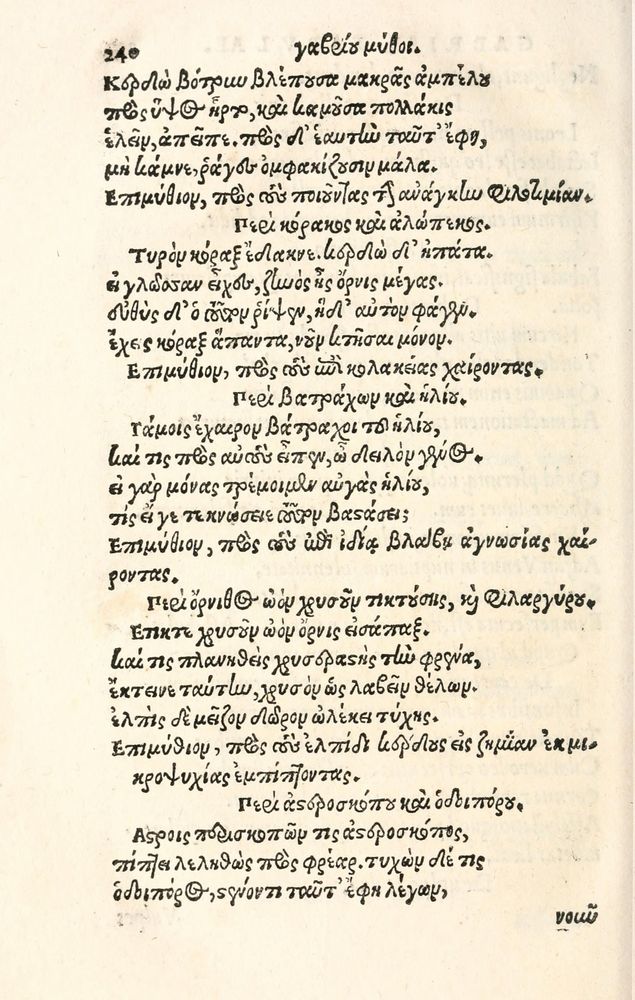 240 γαβρίου μῦθοι.
Κερδὼ βότρυν βλέπουσα μακρᾶς ἀμπέλου
πρὸς ὕψος ἦρτο, καὶ καμοῦσα πολλάκις
ἑλεῖν, ἀπεῖπε. πρὸς δ' ἑαυτὴν ταῦτ' ἔφη,
μὴ κάμνε, ῥάγες ὀμφακίζουσιν μάλα.
Επιμύθιον, πρὸς τοὺς ποιοῦντας τὴν ἀνάγκην φιλοτιμίαν.
Περὶ κόρακος καὶ ἀλώπεκος.
Τυρὸν κόραξ ἔδακνε. κερδὼ δ' ἠπάτα.
εἰ γλῶσσαν εἶχες, ζηνὸς ἦς ὄρνις μέγας.
εὐθὺς δ' ὁ τοῦτον ῥίψεν, ἡ δ' αὐτὸν φάγεν.
ἔχεις κόραξ ἅπαντα, νοῦν κτῆσαι μόνον.
Επιμύθιον, πρὸς τοὺς ἐπὶ κολακείας χαίροντας.
Περὶ βατράχων καὶ ἡλίου.
Γάμοις ἔχαιρον βάτραχοι τοῦ ἡλίου,
καί τις πρὸς αὐτοὺς εἶπεν, ὦ δειλὸν γένος.
εἰ γὰρ μόνας τρέμοιμεν αὐγὰς ἡλίου,
τίς εἴ γε τεκνώσειε τοῦτον βαστάσει;
Επιμύθιον, πρὸς τοὺς ἐπὶ ἰδίᾳ βλάβῃ ἀγνωσίας χαί-
ροντας.
Περὶ ὄρνιθος ὠὸν χρυσοῦν τικτούσης, καὶ φιλαργύρου.
Επικτε χρυσοῦν ὠὸν ὄρνις εἰσάπαξ.
καί τις πλανηθεὶς χρυσεραστὴς τὴν φρένα,
ἔκτεινε ταύτην, χρυσὸν ὡς λαβεῖν θέλων.
ἐλπὶς δὲ μεῖζον δῶρον ὠλέκει τύχης.
Επιμύθιον, πρὸς τοὺς ἐλπίδι κέρδους εἰς ζημΐαν ἐκ μι-
κροψυχίας ἐμπίπτοντας.
Περὶ ἀστροσκόπου καὶ ὁδοιπόρου.
Αστροις περισκοπῶν τις ἀστροσκόπος,
πίπτει λεληθὼς πρὸς φρέαρ. τυχὼν δέ τις
ὁδοιπόρος, στένοντι ταῦτ' ἔφη λέγων,
νοιῦ